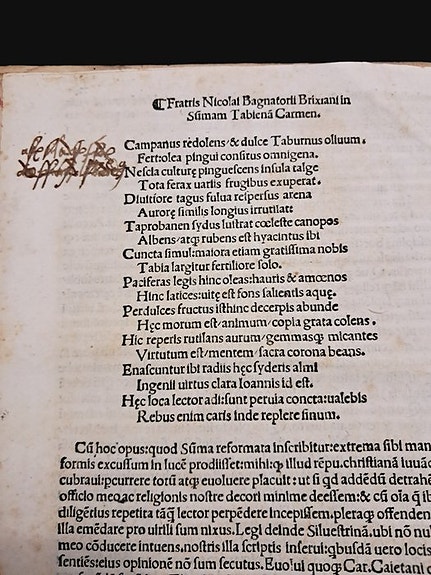 ¶ Fratris Nicolai Bagnatorii Brixiani in
Sūmam Tabienā Carmen.
Campanus redolens/& dulce Taburnus oliuum.
Fert:olea pingui consitus omnigena.
Nescia culturę pinguescens insula talge
Tota ferax uariis frugibus exuperat.
Diuitiore tagus fulua respersus arena
Aurorę similis longius irrutilat:
Taprobanen sydus lustrat cœleste canopos
Albens/atq; rubens est hyacintus ibi
Cuncta simul:maiora etiam gratissima nobis
Tabia largitur fertiliore solo.
Paciferas legis hinc oleas:hauris & amœnos
Hinc latices:uitę est fons salientis aquę.
Perdulces fructus isthinc decerpis abunde
Hęc morum est/animum/copia grata colens.
Hic reperis rutilans aurum/gemmasq; micantes
Virtutum est/mentem/sacra corona beans.
Enascuntur ibi radiis hęc syderis almi
Ingenii uirtus clara Ioannis id est.
Hęc loca lector adi:sunt peruia cuncta:ualebis
Rebus enim caris inde replere sinum.
Cū hoc opus:quod Sūma reformata inscribitur:extrema sibi man
formis excussum in lucē prodiisset:mihi:q illud rēpu.christianā iuuā
cubraui:pcurrere totū atq; euoluere placuit: ut si qd addēdū detrahē
officio meo ac religionis nostre decori minime deessem:& cū oīa q̄ ib
diligētius repetita tāq̄ lector perpēdere incepissem, pleraq; offenden
illa emēdare pro uirili sum nixus. Legi deinde Siluestrinā. ubi nō nu
meo cōducere intuens, nostris illa scriptis inserui: qbusdā uero locis
sentiēs eius opinionē nō sum secutus. Euolui quoq; Car. Caietani o